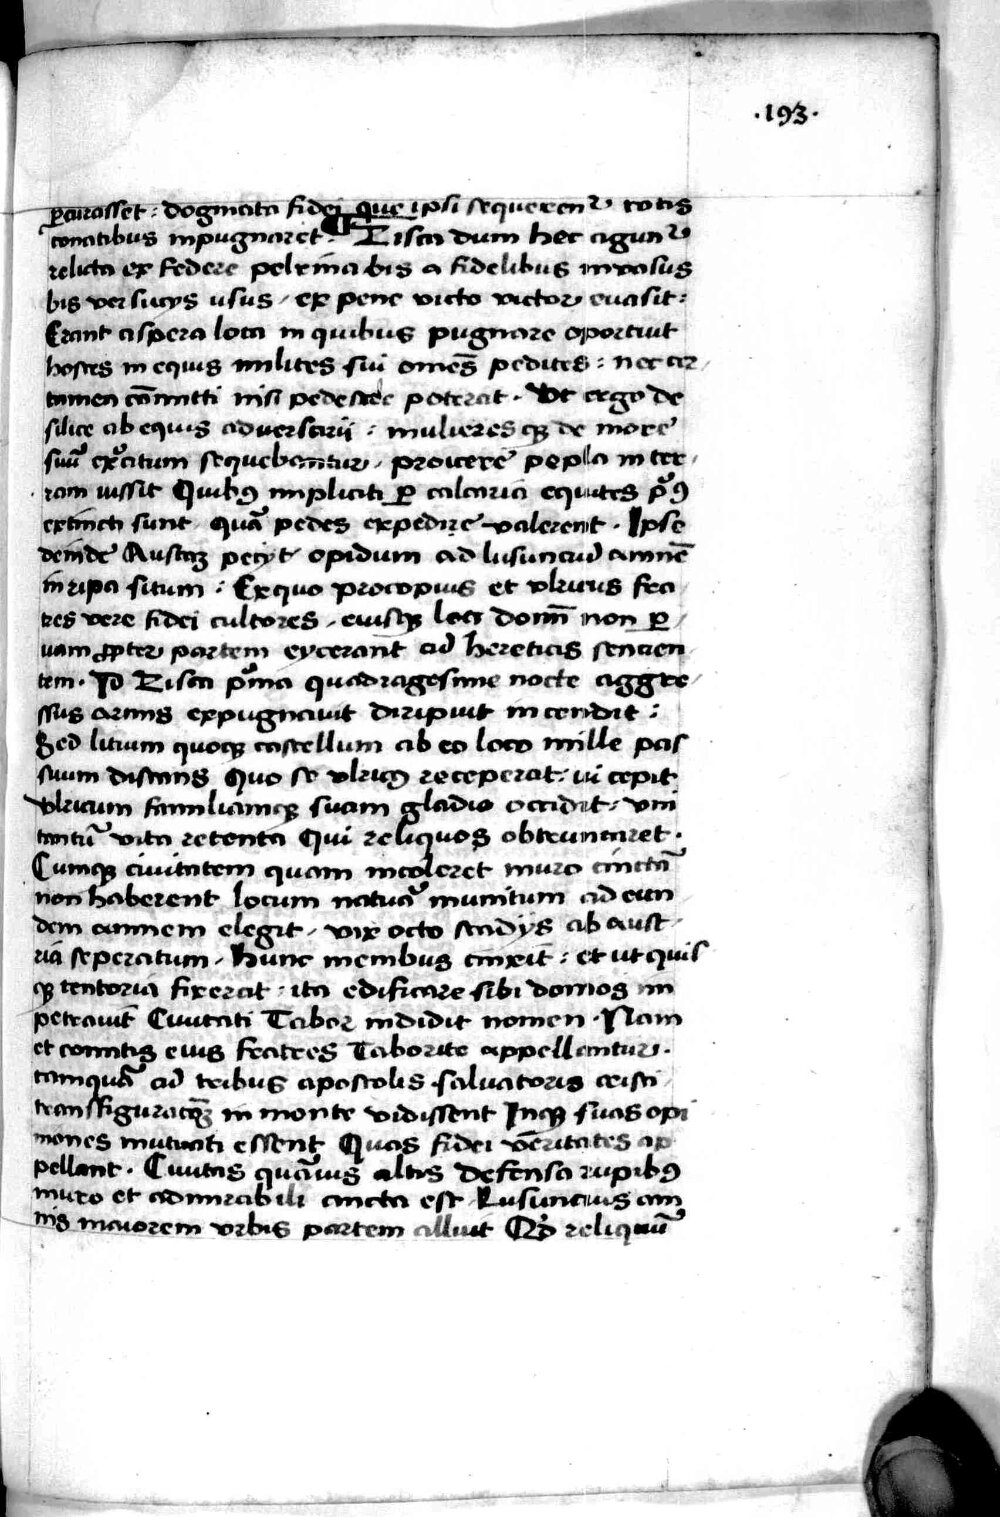 ·193·
ꝑcurasset : dogmata fidei que ipsi sequerent᷑ totis
conatibus inpugnaret · ¶ Zisca dum hec agunt᷑
relicta ex federe pelzina bis a fidelibus invasus
bis versucijs usus , ex pene victo victor evasit :
Erant aspera loca in quibus pugnare oportuit
hostes in equis milites sui om̄es pedites : nec cer
tamen cōmitti nisi pedestre poterat · Ut ergo de
silire ab equis adversarii : mulieres qꝫ de more
suū exͤrcitum sequebantur , proicere pepla in ter
ram iussit Quibꝰ impliciti ꝑ calcaria equites pͥꝰ
extincti sunt quā pedes expedire valerent · Ipse
deinde Austaꝫ petijt opidum ad lusunciū amnē
in ripa situm : Ex quo procopius et ulricus fra
tres vere fidei cultores , eiusqꝫ loci domī non ꝑ
vam ꝓpter partem eycerant ad hereticas sencien
tem · Id Zisca pͥma quadragesime nocte aggre
ssus armis expugnavit diripuit incendit :
Sed litium quoqꝫ castellum ab eo loco mille pas
suum distans Quo se ulricꝰ receperat : vi cepit
ulricum familiamqꝫ suam gladio occidit : uni
tantū vita retenta Qui reliquos obtruncaret ·
Cumqꝫ civitatem quam incoleret muro cinctā
non haberent locum naturā munitum ad eun
dem amnem elegit , vix octo stadijs ab aust
ria seperatum , Hunc menibus cinxit : et ut quis
qꝫ tentoria fixerat : ita edificare sibi domos im
petravit Civitati Tabor indidit nomen · Nam
et comitis eius fratres Taborite appellantur ·
tamquā ad tribus apostolis salvatoris cristi
transfiguracōꝫ in monte vidissent Inqꝫ suas opi
niones mutuati essent Quas fidei veritates ap
pellant · Civitas quāvis altis defensa rupibꝰ
muro et admirabili cincta est Lusuncius am
nis maiorem urbis partem alluit Qd̓ reliquū